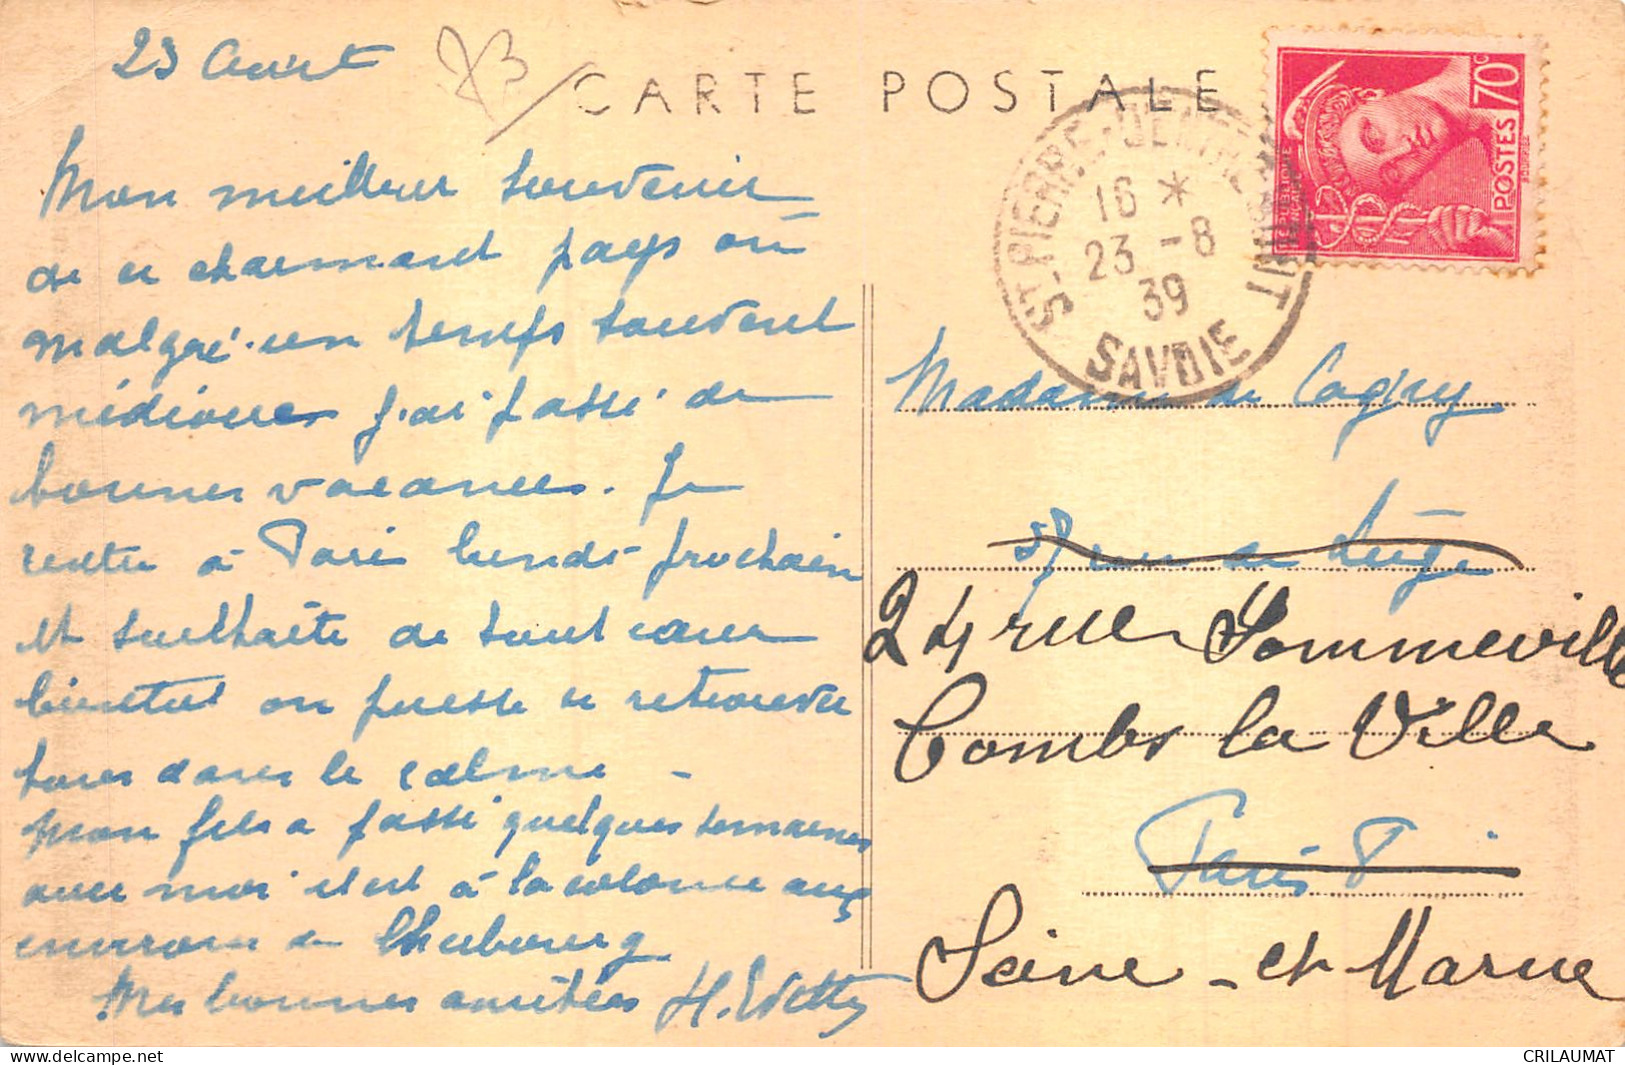 23 Août
CARTE POSTALE
Mon meilleur souvenir
de ce charmant pays où
malgré un temps souvent
médiocre j'ai passé de
bonnes vacances. Je
rentre à Paris lundi prochain
et souhaite de tout cœur
bientôt on puisse se retrouver
tous dans le calme -
Mon fils a passé quelques semaines
avec moi il est à la colonie aux
environs de Cherbourg
Mes bonnes amitiés H.
ST PIERRE-D'ENTREMONT
16 *
23 - 8
39
SAVOIE
70c
POSTES
REPUBLIQUE
FRANÇAISE
Madame de Cagny
57 rue de Liège
24 rue Sommeville
Combs la Ville
Paris
Seine-et Marne
CRILAUMAT